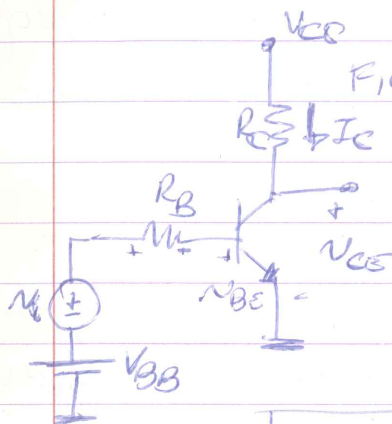 VCC
RC IC
RB
+ + +
+
vCE
vBE -
±
VBB